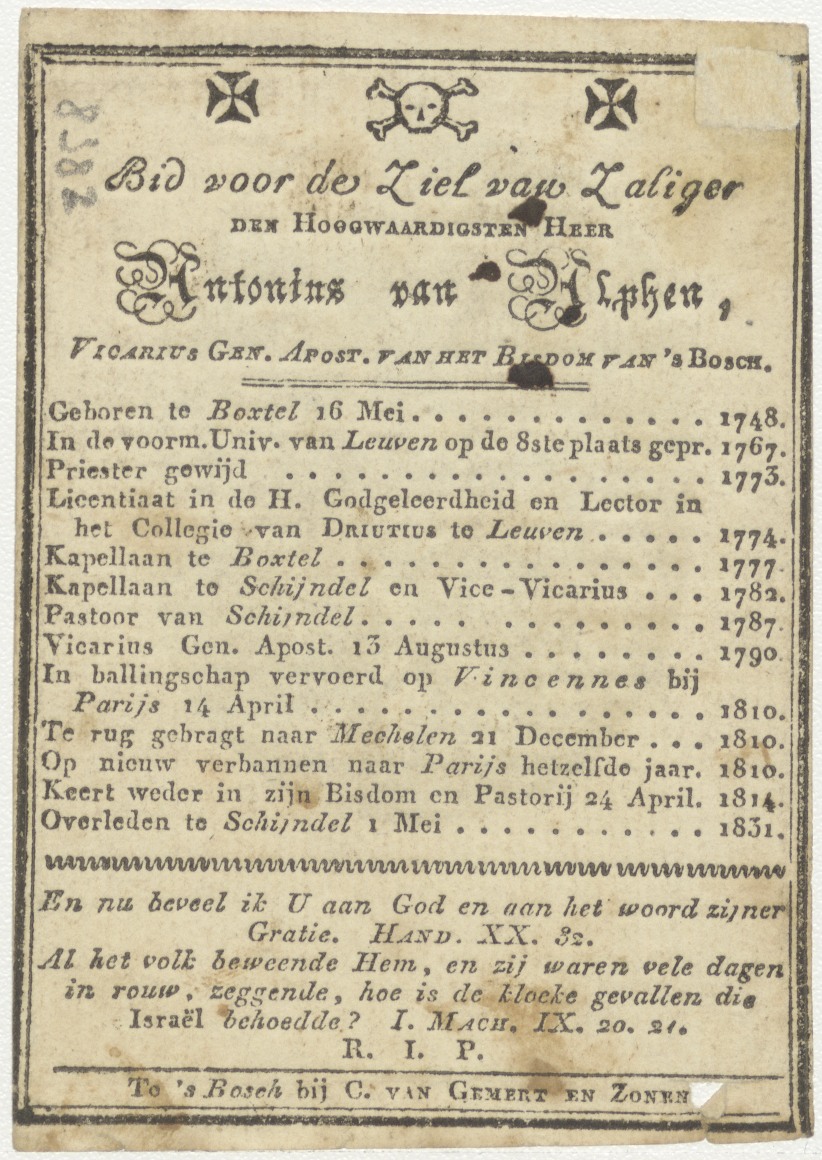 8382
Bid voor de Ziel van Zaliger
DEN HOOGWAARDIGSTEN HEER
Antonius van Alphen,
VICARIUS GEN. APOST. VAN HET BISDOM VAN 's BOSCH.
Geboren te Boxtel 16 Mei. . . . . . . . . . . . . . 1748.
In de voorm. Univ. van Leuven op de 8ste plaats gepr. 1767.
Priester gewijd . . . . . . . . . . . . . . . . . . 1773.
Licentiaat in de H. Godgeleerdheid en Lector in
het Collegie van DRIUTIUS te Leuven . . . . . 1774.
Kapellaan te Boxtel . . . . . . . . . . . . . . . . 1777.
Kapellaan te Schijndel en Vice-Vicarius . . . 1782.
Pastoor van Schijndel. . . . . . . . . . . . . . . 1787.
Vicarius Gen. Apost. 13 Augustus . . . . . . . . 1790.
In ballingschap vervoerd op Vincennes bij
Parijs 14 April . . . . . . . . . . . . . . . . . 1810.
Te rug gebragt naar Mechelen 21 December . . . 1810.
Op nieuw verbannen naar Parijs hetzelfde jaar. 1810.
Keert weder in zijn Bisdom en Pastorij 24 April. 1814.
Overleden te Schijndel 1 Mei . . . . . . . . . . . . 1831.
En nu beveel ik U aan God en aan het woord zijner
Gratie. HAND. XX. 32.
Al het volk beweende Hem, en zij waren vele dagen
in rouw, zeggende, hoe is de klocke gevallen die
Israël behoedde? I. MACH. IX. 20. 21.
R. I. P.
Te 's Bosch bij C. VAN GEMERT EN ZONEN